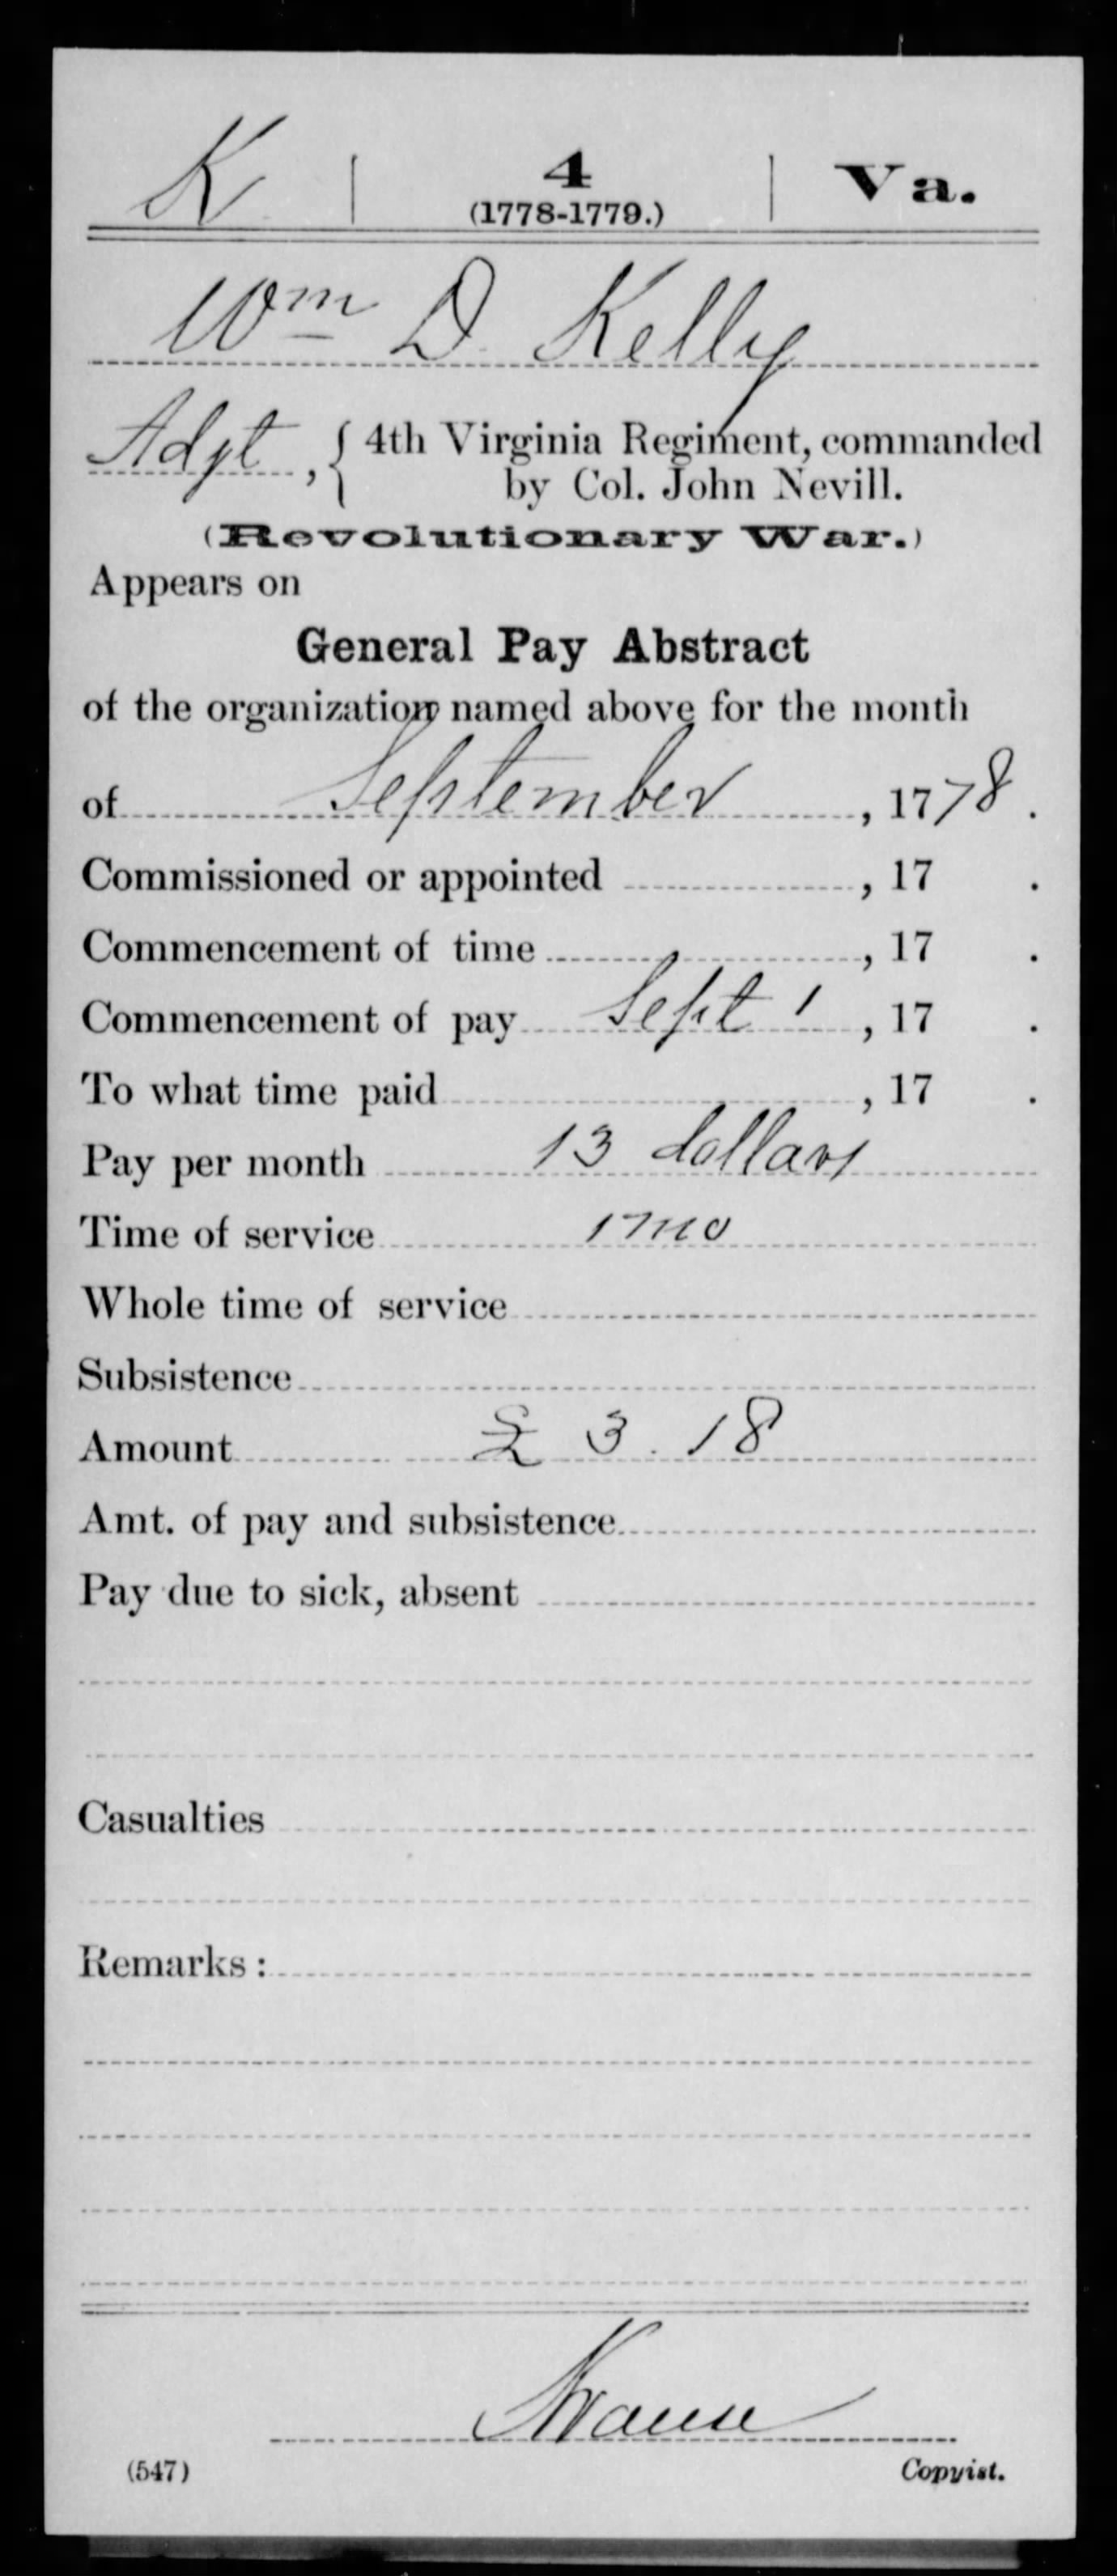 K | 4 | Va.
(1778-1779.)
Wm D. Kelly
Adjt, { 4th Virginia Regiment, commanded
by Col. John Nevill.
(Revolutionary War.)
Appears on
General Pay Abstract
of the organization named above for the month
of September, 1778.
Commissioned or appointed , 17 .
Commencement of time , 17 .
Commencement of pay Sept 1, 17 .
To what time paid , 17 .
Pay per month 13 dollars
Time of service 1 mo
Whole time of service
Subsistence
Amount £ 3. 18
Amt. of pay and subsistence
Pay due to sick, absent
Casualties
Remarks:
(547) Copyist.